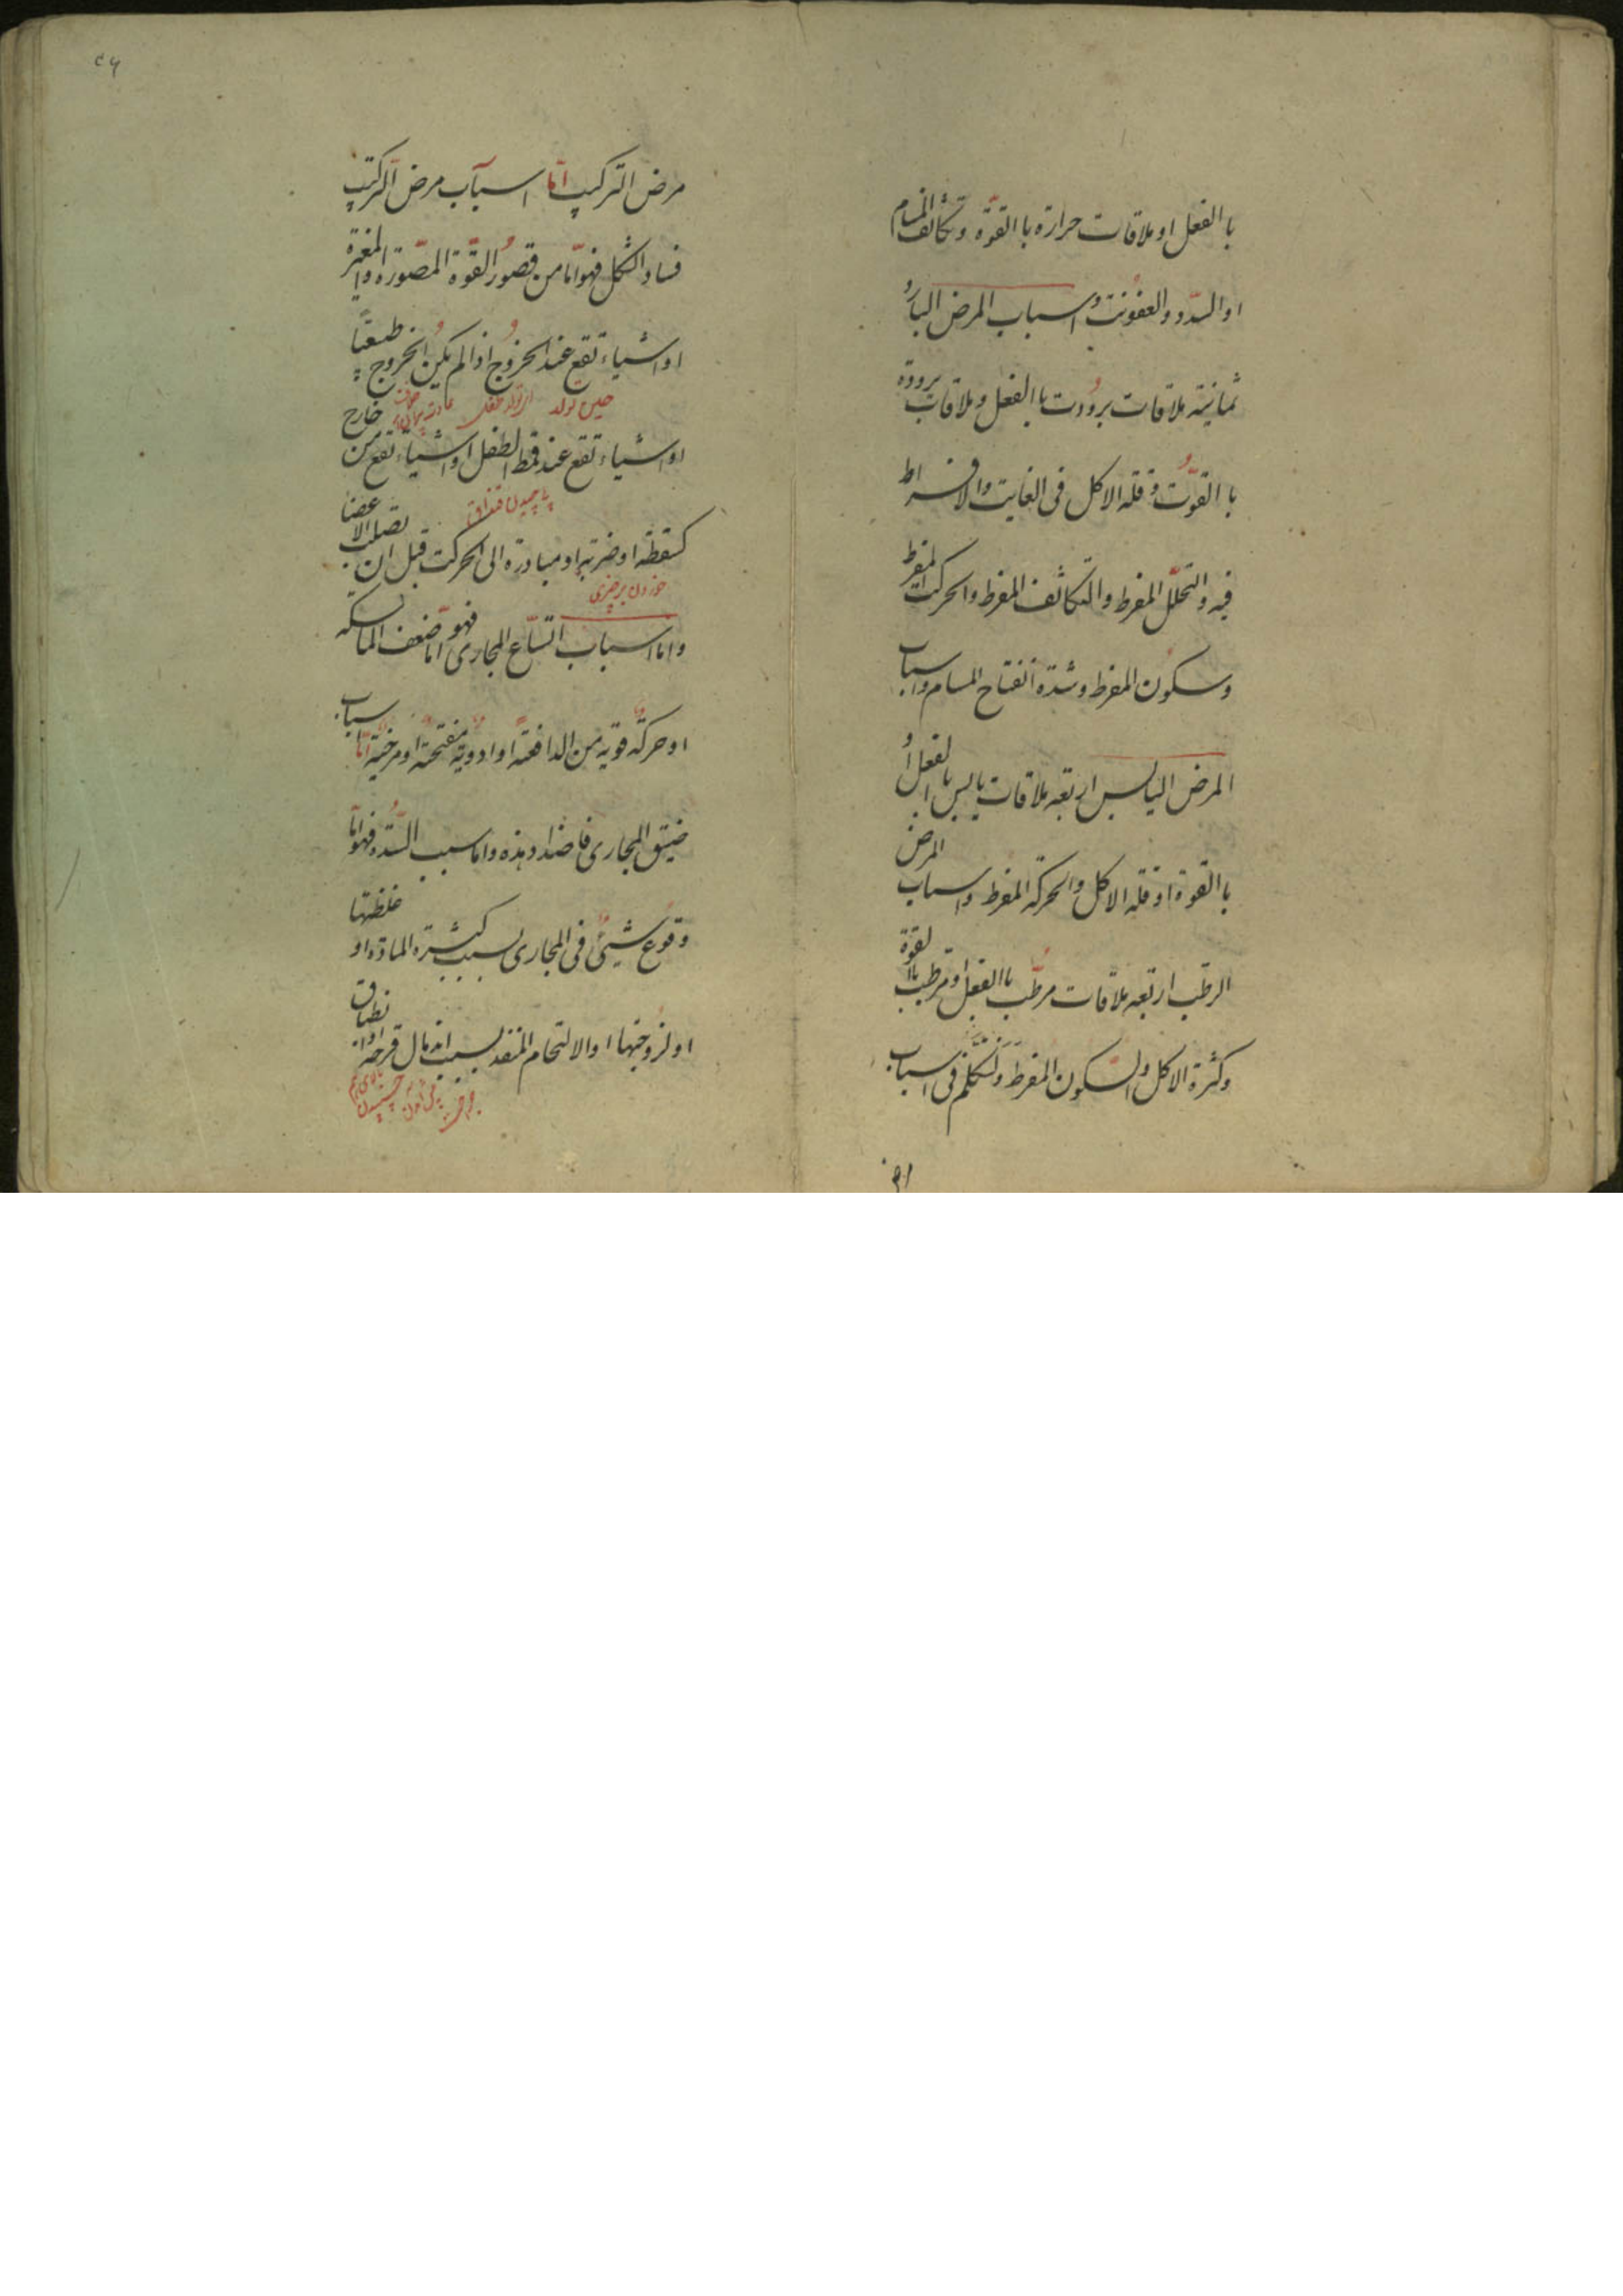 باالفعل او ملاقات حرارة باالقوّة وتكاثف المسام
او السدد والعفونت واسباب المرض البارد
ثمانية ملاقات برودت باالفعل وملاقات برودة
باالقوّت وقلة الاكل فى الغايت والافراط
فيه والتحلل المفرط والتكاثف المفرط والحركت المفرط
وسكون المفرط وشدة انفتاح المسام واسباب
المرض اليابس اربعه ملاقات يابس باالفعل او
باالقوة او قلة الاكل والحركة المفرط واسباب المرض
الرطب اربعه ملاقات مرطّب باالفعل او مرطب باالقوة
وكثرة الاكل والسكون المفرط ولنتكلم فى اسباب
مرض التركيب امّا اسباب مرض التركيب
فساد الشكل فهو امّا من قصور القوّة المصّورة والمغيرة
او اشياء تقع عند الخروج اذا لم يكن الخروج طبيعيّا
حين تولد
او اشياء تقع عند قمط الطفل او اشياء تقع من خارج
پاچيدن قنداق
كسقطة او ضربة او مبادرة الى الحركت قبل ان تصلب الاعضا
خوردن بر چيزى
واما اسباب اتسّاع المجارى فهو امّا ضعف الماسكه
او حركة قوية من الدافعة او ادوية مفتحة او مرخية امّا اسباب
ضيق المجارى فاضداد هذه واما سبب السّدد فهو امّا
وقوع شيئ فى المجارى بسبب كثرة المادة او غلظتها
او لزوجتها او الالتحام المنفذ بسبب اندمال قرحة او انطباق